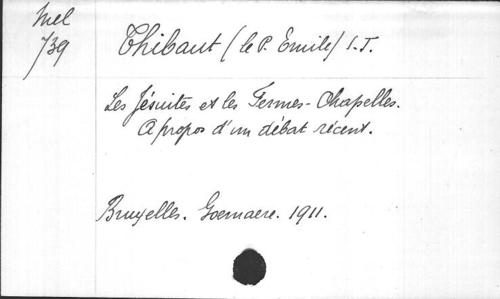 Mel
739
Thibaut (le P. Emile) S. J.
Les Jésuites et les Fermes-Chapelles.
A propos d'un débat récent.
Bruxelles. Goemaere. 1911.